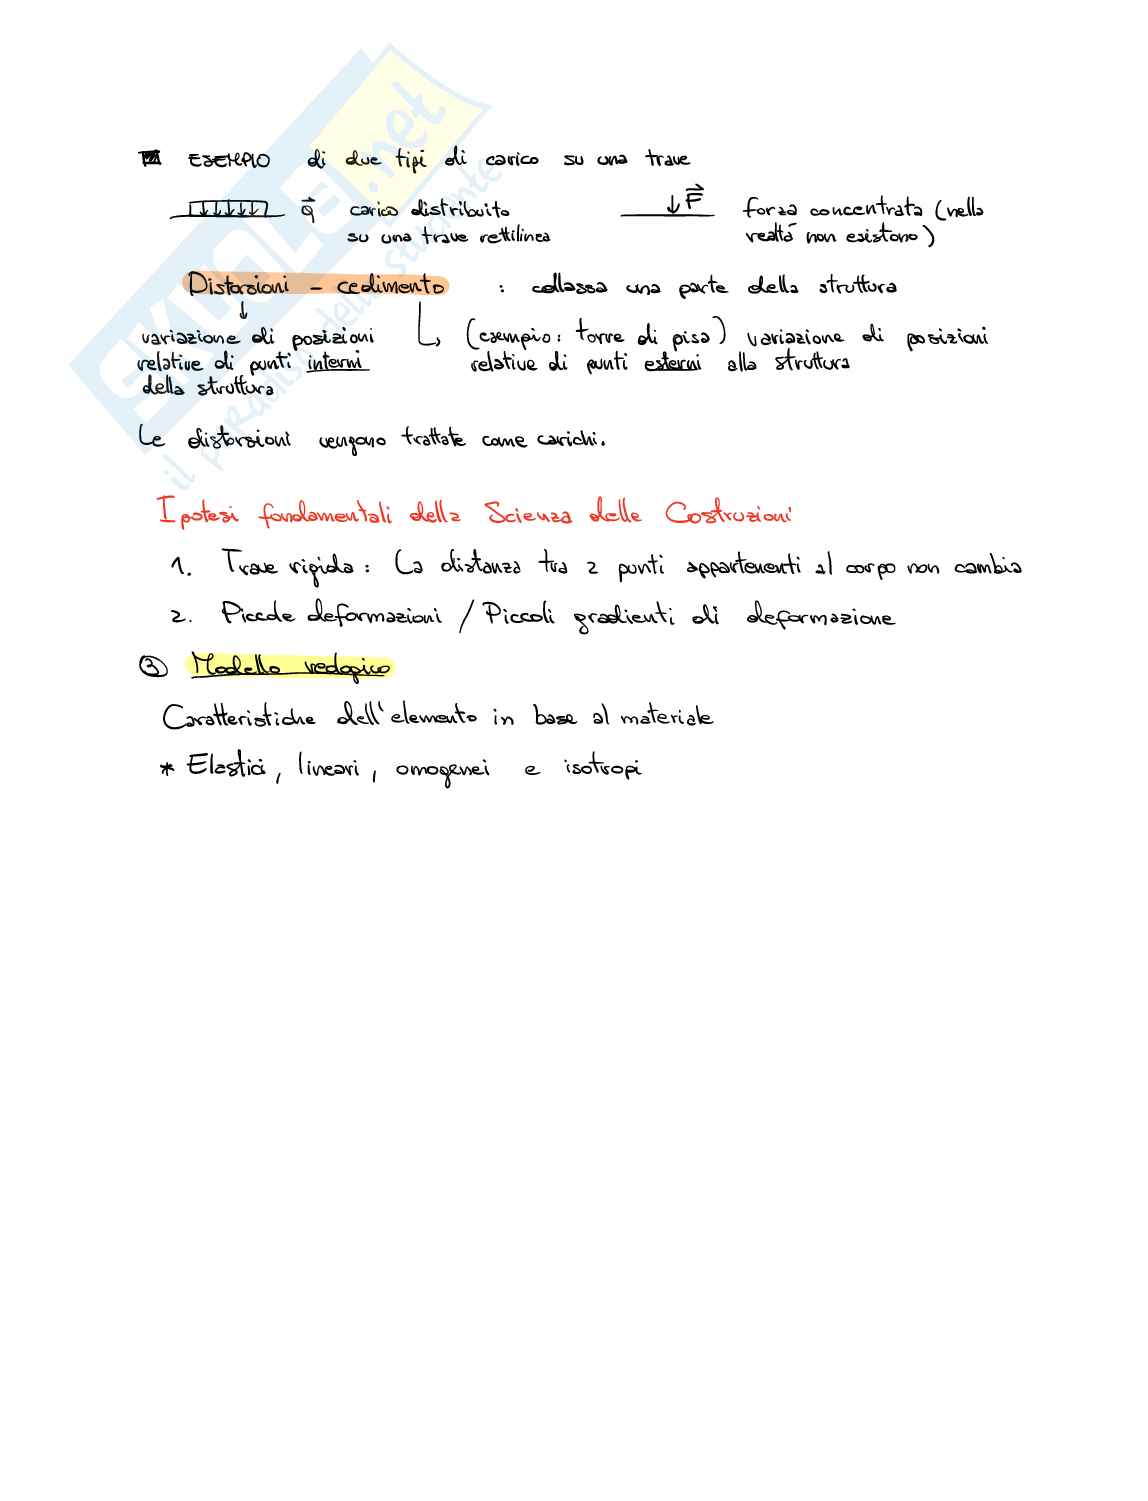 ESEMPIO di due tipi di carico su una trave
q carico distribuito
su una trave rettilinea
F forza concentrata (nella
realtà non esistono)
Distorsioni - cedimento : collassa una parte della struttura
variazione di posizioni
relative di punti interni
della struttura
(esempio: torre di pisa) variazione di posizioni
relative di punti esterni alla struttura
Le distorsioni vengono trattate come carichi.
Ipotesi fondamentali della Scienza delle Costruzioni
1. Trave rigida: La distanza tra 2 punti appartenenti al corpo non cambia
2. Piccole deformazioni / Piccoli gradienti di deformazione
3 Modello reologico
Caratteristiche dell'elemento in base al materiale
* Elastici, lineari, omogenei e isotropi
SKUOLA.net
il paradiso dello studente